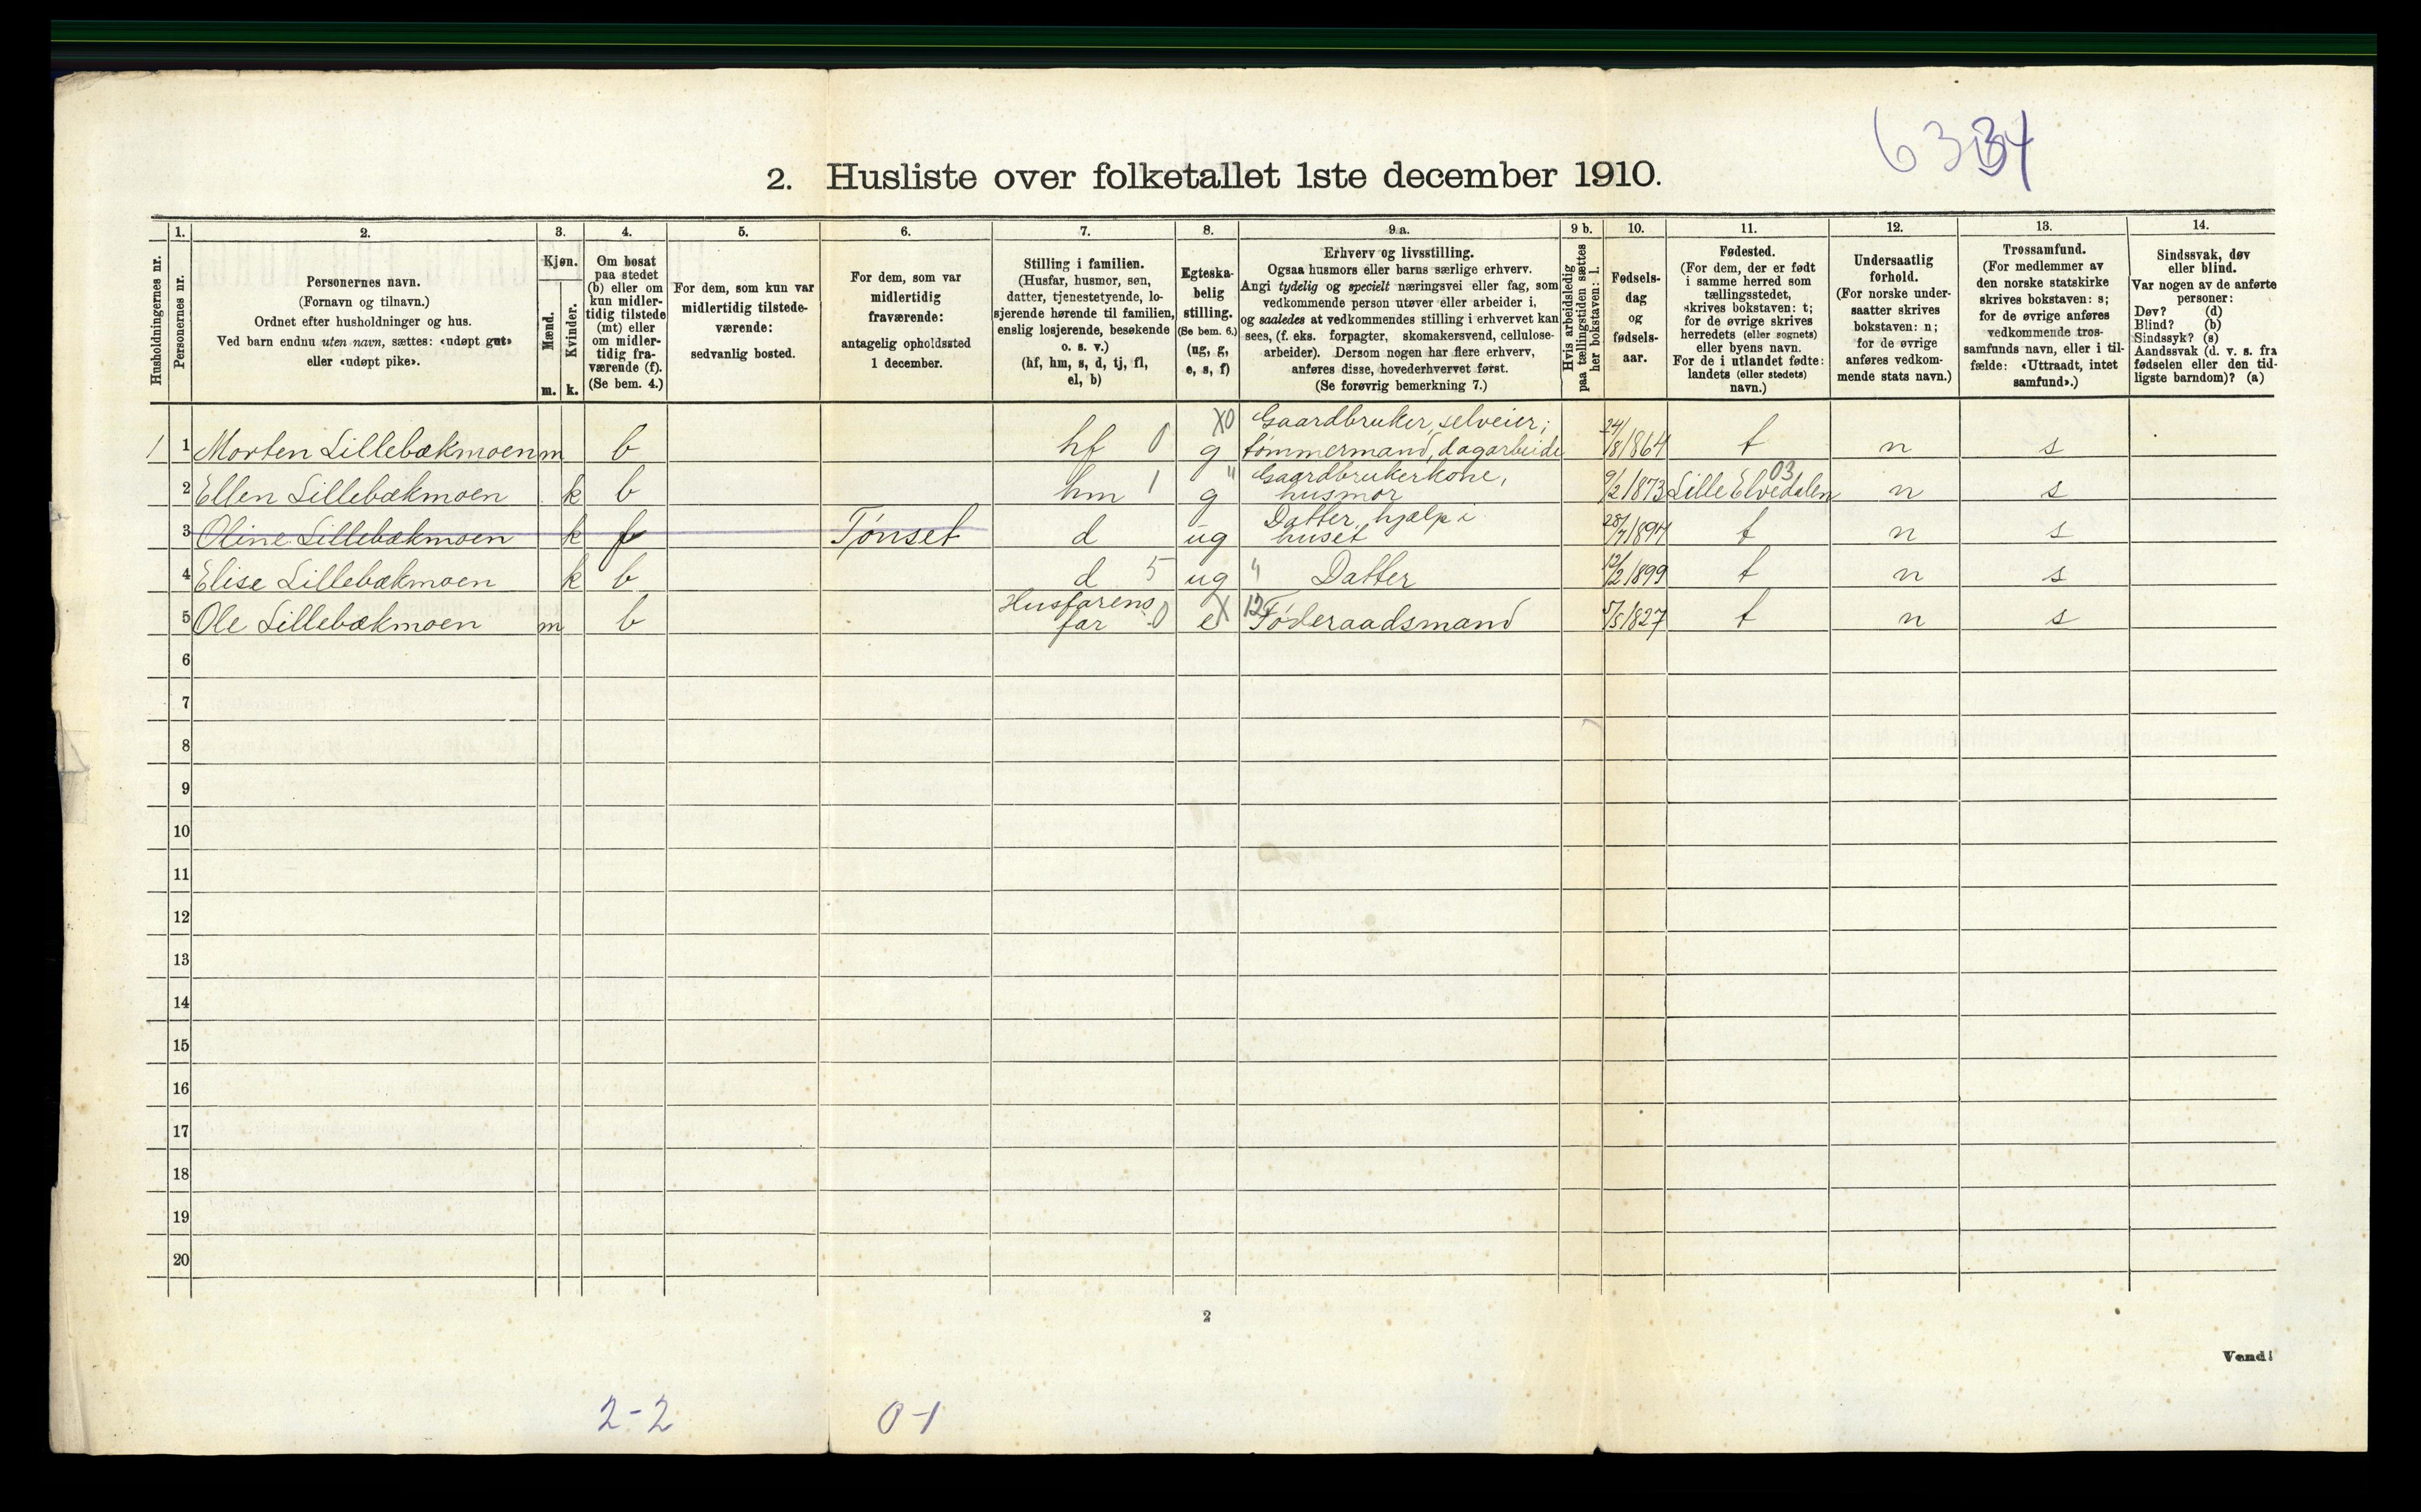 6334
2. Husliste over folketallet 1ste december 1910.
Husholdningernes nr.
1.
Personernes nr.
2.
Personernes navn.
(Fornavn og tilnavn.)
Ordnet efter husholdninger og hus.
Ved barn endnu uten navn, sættes: «udøpt gut»
eller «udøpt pike».
3.
Kjøn.
Mænd.
Kvinder.
m. k.
4.
Om bosat
paa stedet
(b) eller om
kun midler-
tidig tilstede
(mt) eller
om midler-
tidig fra-
værende (f).
(Se bem. 4.)
5.
For dem, som kun var
midlertidig tilstede-
værende:
sedvanlig bosted.
6.
For dem, som var
midlertidig
fraværende:
antagelig opholdssted
1 december.
7.
Stilling i familien.
(Husfar, husmor, søn,
datter, tjenestetyende, lo-
sjerende hørende til familien,
enslig losjerende, besøkende
o. s. v.)
(hf, hm, s, d, tj, fl,
el, b)
8.
Egteska-
belig
stilling.
(Se bem. 6.)
(ug, g,
e, s, f)
9 a.
Erhverv og livsstilling.
Ogsaa husmors eller barns særlige erhverv.
Angi tydelig og specielt næringsvei eller fag, som
vedkommende person utøver eller arbeider i,
og saaledes at vedkommendes stilling i erhvervet kan
sees, (f. eks. forpagter, skomakersvend, cellulose-
arbeider). Dersom nogen har flere erhverv,
anføres disse, hovederhvervet først.
(Se forøvrig bemerkning 7.)
9 b.
Hvis arbeidsledig
paa tællingstiden sættes
her bokstaven: l.
10.
Fødsels-
dag
og
fødsels-
aar.
11.
Fødested.
(For dem, der er født
i samme herred som
tællingsstedet,
skrives bokstaven: t;
for de øvrige skrives
herredets (eller sognets)
eller byens navn.
For de i utlandet fødte:
landets (eller stedets)
navn.)
12.
Undersaatlig
forhold.
(For norske under-
saatter skrives
bokstaven: n;
for de øvrige
anføres vedkom-
mende stats navn.)
13.
Trossamfund.
(For medlemmer av
den norske statskirke
skrives bokstaven: s;
for de øvrige anføres
vedkommende tros-
samfunds navn, eller i til-
fælde: «Uttraadt, intet
samfund».)
14.
Sindssvak, døv
eller blind.
Var nogen av de anførte
personer:
Døv? (d)
Blind? (b)
Sindssyk? (s)
Aandssvak (d. v. s. fra
fødselen eller den tid-
ligste barndom)? (a)
X0 Gaardbruker, selveier;
1 1 Morten Lillebækmoen m b hf 0 g tømmermand, dagarbeide 24/8 1864 t n s
" Gaardbrukerkone, 03
2 Ellen Lillebækmoen k b hm 1 g husmor 9/2 1873 Lille Elvedalen n s
Datter, hjælp i
3 Oline Lillebækmoen k f Tønset d ug huset 28/7 1894 t n s
4 Elise Lillebækmoen k b d 5 ug " Datter 12/2 1899 t n s
Husfarens
5 Ole Lillebækmoen m b far 0 e X 12 Føderaadsmand 5/5 1827 t n s
6
7
8
9
10
11
12
13
14
15
16
17
18
19
20
2
Vend!
2-2 0-1